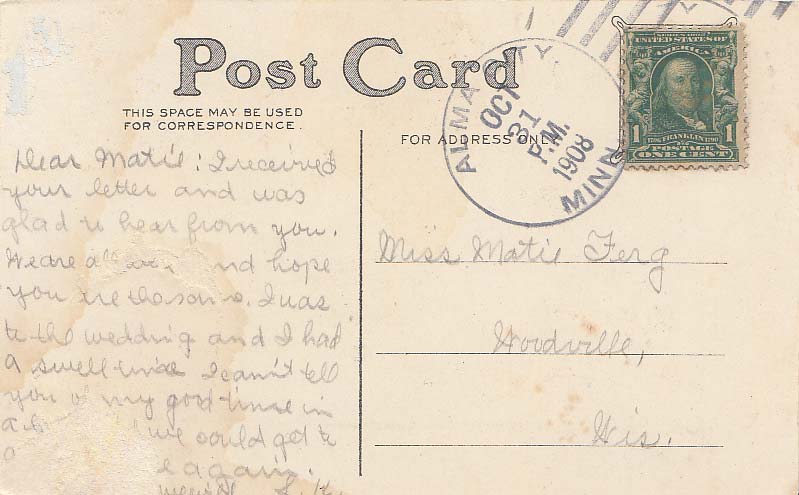 Post Card
THIS SPACE MAY BE USED
FOR CORRESPONDENCE.
FOR ADDRESS ONLY
ALMA CITY,
MINN
OCT
31
P.M.
1908
SERIES 1902
UNITED STATES OF
AMERICA
1 1706 FRANKLIN 1790 1
POSTAGE
ONE CENT
Dear Matie: I received
your letter and was
glad to hear from you.
We are all and hope
you are the same. I was
to the wedding and I had
a swell time I cann't tell
you of my good time in
a we could get to
again.
Miss Matie Ferg
Woodville,
Wis.